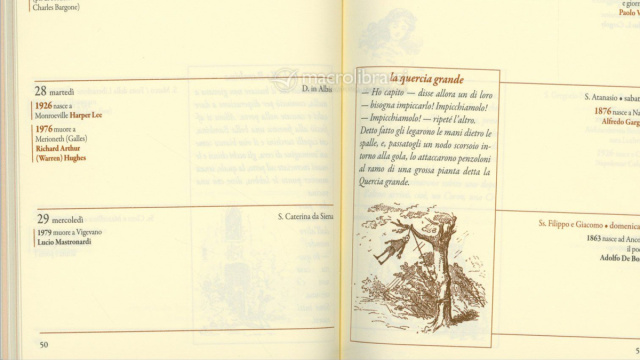 Charles Bargone)
28 martedì
D. in Albis
1926 nasce a
Monroeville Harper Lee
1976 muore a
Merioneth (Galles)
Richard Arthur
(Warren) Hughes
29 mercoledì
S. Caterina da Siena
1979 muore a Vigevano
Lucio Mastronardi
50
macrolibra
la quercia grande
— Ho capito — disse allora un di loro
— bisogna impiccarlo! Impicchiamolo!
— Impicchiamolo! — ripeté l'altro.
Detto fatto gli legarono le mani dietro le
spalle, e, passatogli un nodo scorsoio in-
torno alla gola, lo attaccarono penzoloni
al ramo di una grossa pianta detta la
Quercia grande.
e giorn
Paolo V
S. Atanasio • sabat
1876 nasce a Na
Alfredo Garg
Ss. Filippo e Giacomo • domenica
1863 nasce ad Anco
il po
Adolfo De Bo